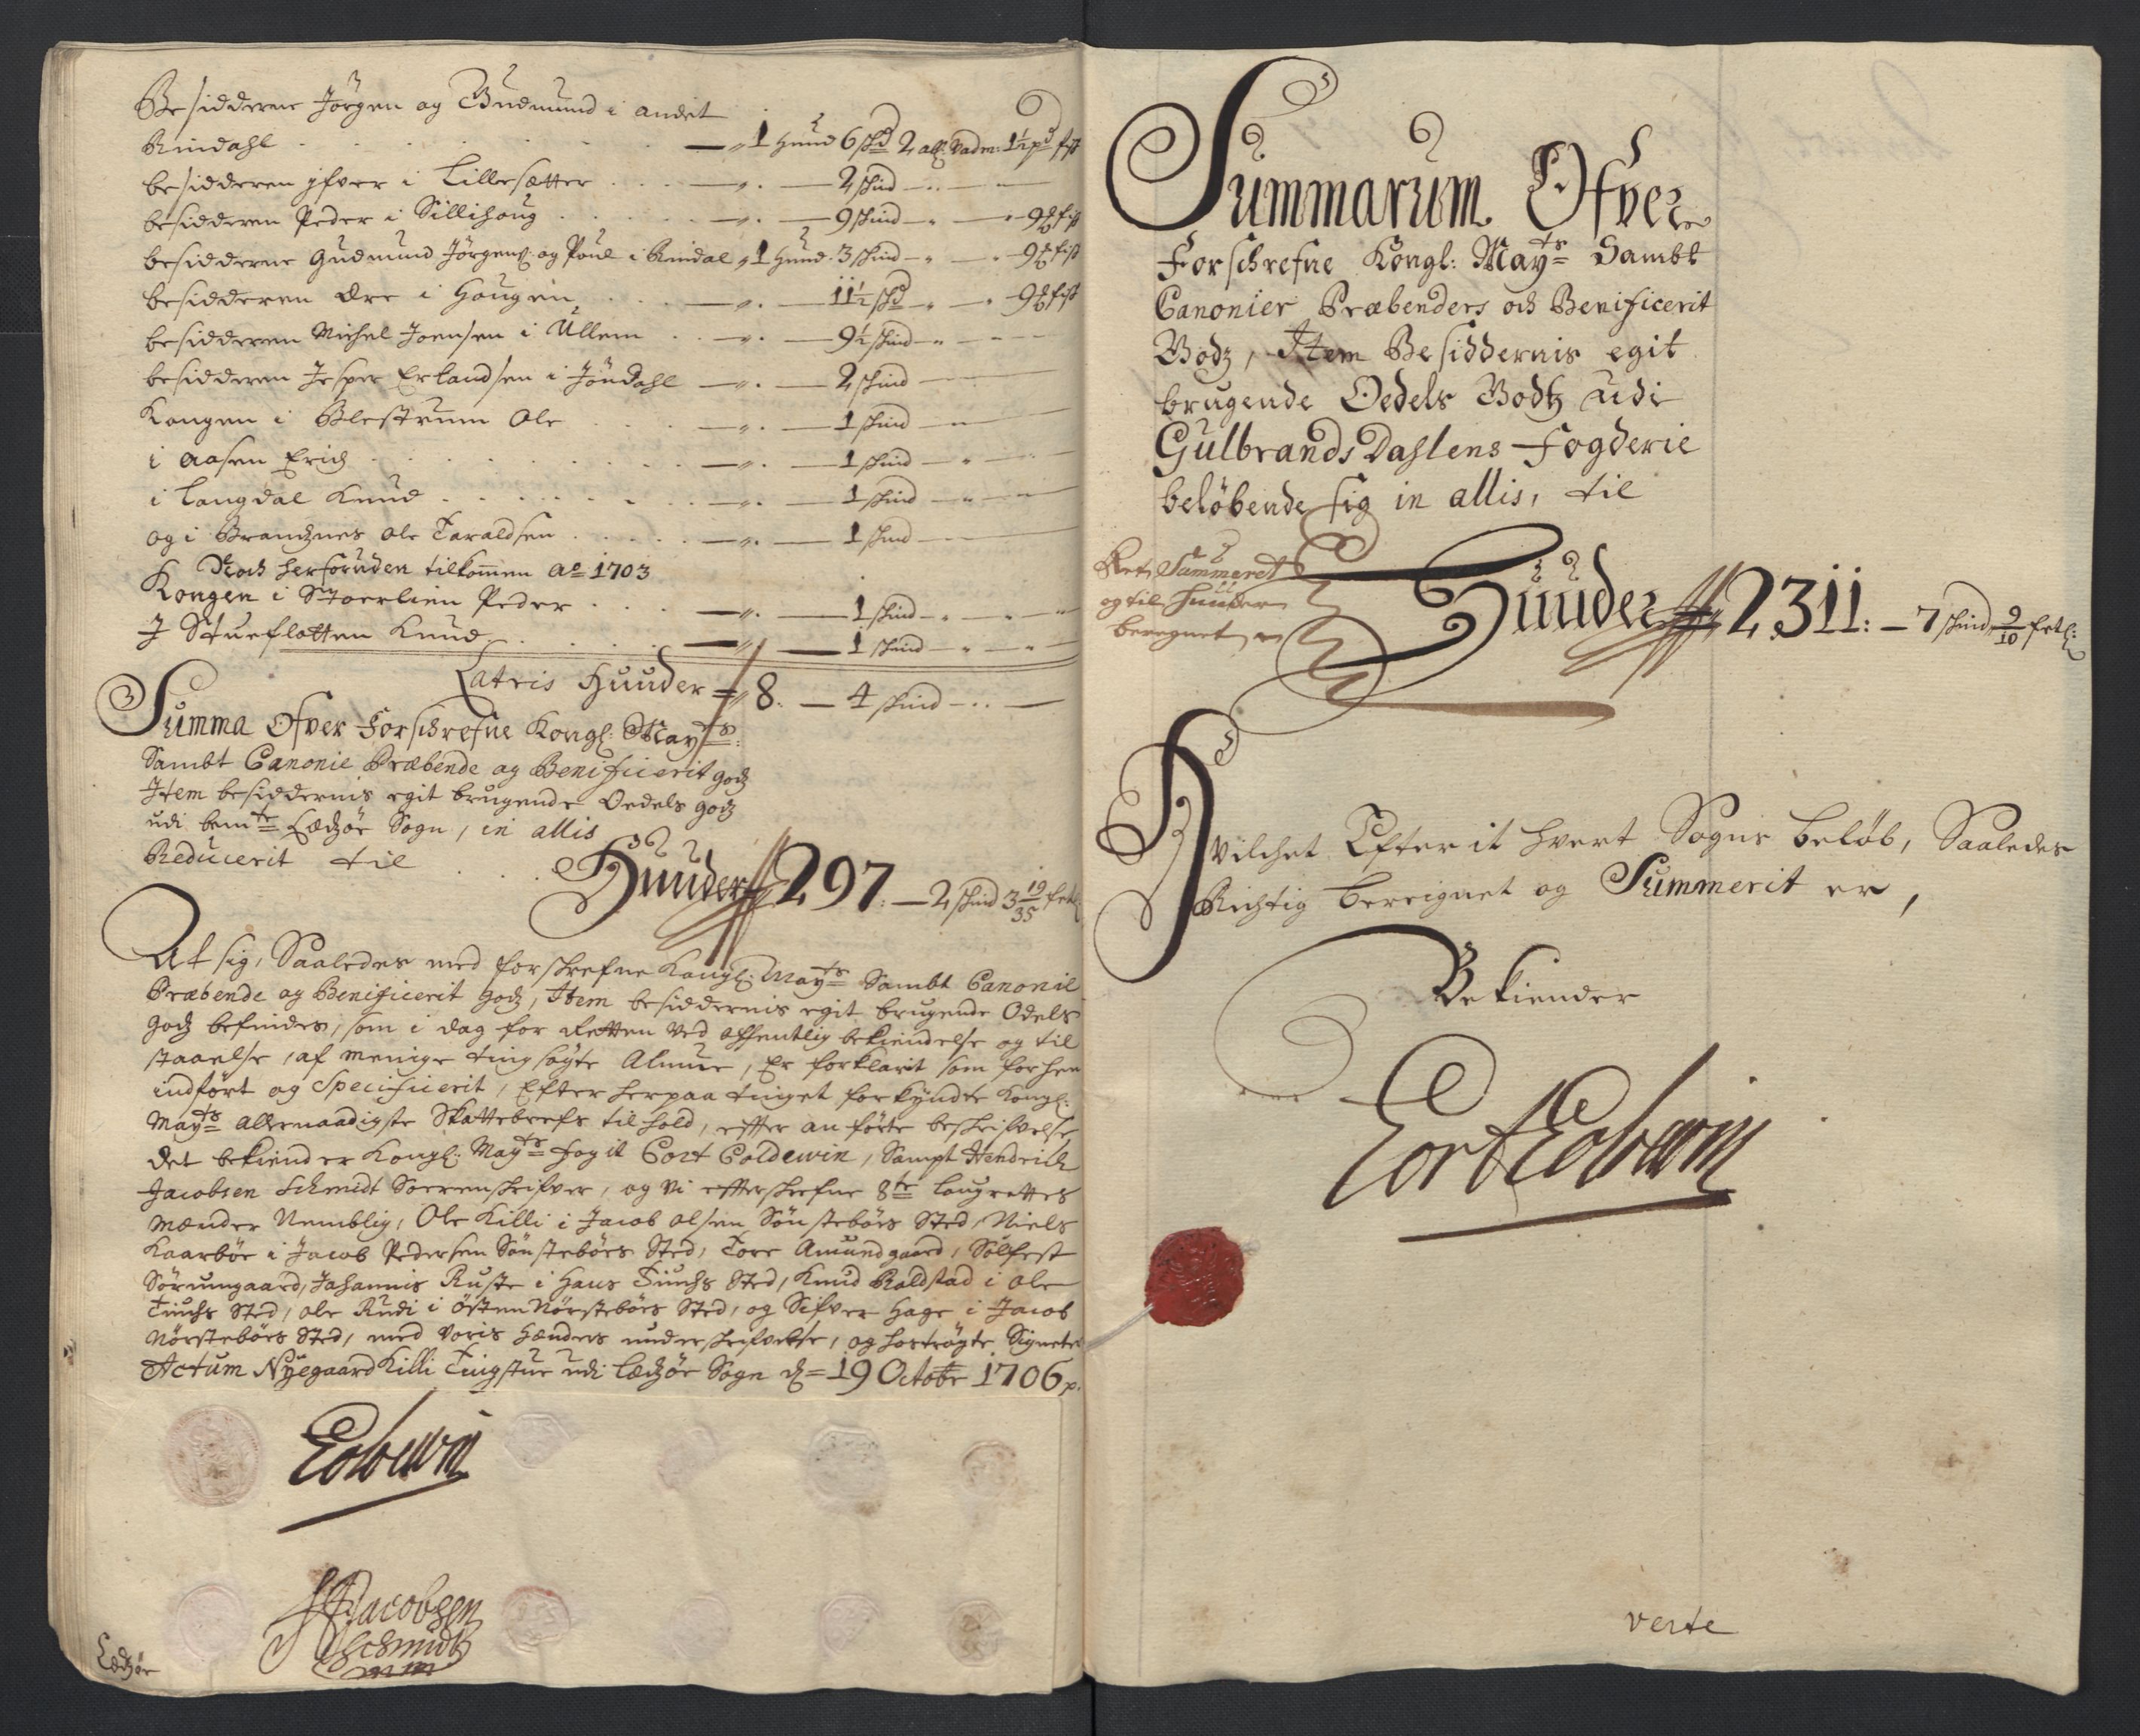 Besidderne Jörgen og Gudmund i andet
Rindahl — 1 Hund 6 skd 2 all: Vadm: 1½ pd fisk
besidderen Ifver i Lillesætter — 2 skind
besidderen Peder i Sillihoug — 9 skind — 9 ℔ fisk
besidderne Gudmund Jörgens: og Poul i Rindal 1 Hund 3 skind — 9 ℔ fisk
besidderen Are i Hougen — 11½ skd — 9 ℔ fisk
besidderen Michel Joensen i Ullem — 9½ skind
besidderen Jesper Erlandsen i Jöndahl — 2 skind
Kongen i Blestrum Ole — 1 skind
i Aasen Erich — 1 skind
i Langdal Knud — 1 skind
og i Brandznes Ole Taraldsen — 1 skind
Noch herforuden tilkommen Ao 1703
Kongen i Stoerlien Peder — 1 skind
I Stueflotten Knud — 1 skind
Latris Huuder 8. — 4 skind
Summa Ofver Forschrefne Kongl: Mayts:
Sambt Canonie Præbende og Benificerit godz
Item besiddernis egit brugende Oedels godz
udi bemte Ledzöe Sogn, in allis
Reducerit til
Huuder 297: — 2 skind 3 19/35 fetl:
At sig, Saaledes med forskrefne Kongl: Mayts Sambt Canonie
Præbende og Benificerit godz, Item besiddernis egit brugende Odels
godz befindes, som i dag for Retten ved offentlig bekiendelse og til
staaelse, af menige tingsøgte Almue, Er forklarit som forhen
indført og Specificerit, Efter herpaa tinget forkyndte Kongl:
Mayts allernaadigste Skattebrefs tilhold, effter anførte beskrifvelse
Det bekiender Kongl: Mayts fogit Cort Coldewin, Sampt Hendrich
Jacobsen Schmidt Sorenskrifver, og vi effterskrefne 8te laugrettes
mænder Nemblig, Ole Killi i Jacob Olsen Sönstebøes Sted, Niels
Kaarbøe i Jacob Pedersen Sönstebøes Sted, Tore Amundgaard, Sölfest
Sörumgaard, Johannis Ruste i Hans Tiuchs Sted, Knud Raldstad i Ole
Tiuchs Sted, Ole Rudi i Östen Nörstebøes Sted, og Sifver Hage i Jacob
Nörstebøes Sted, med voris Hænders underskrifvelse, og hoströgte Signeter
Actum Nyegaard Killi Tingstue udi Ledzöe Sogn d= 19 Octobr 1706 p.
Coldewin
HJacobsen
Schmidt
mm
Ledzöe
Summarum Ofver
Forschrefne Kongl: Mayts Sambt
Canonier Præbenders och Benificerit
Godz, Item Besiddernis egit
brugende Oedels Godtz udi
Gulbrands Dahlens Fogderie
belöbende sig in allis, til
Ret Summeret
og til Huuder
beregnet
Huuder 2311: — 7 skind 9/10 fetl:
Hvilchet Efter it hvert Sogns beløb, Saaledes
Richtig bereignet og Summerit er,
Bekiender
Cort Coldewin
verte